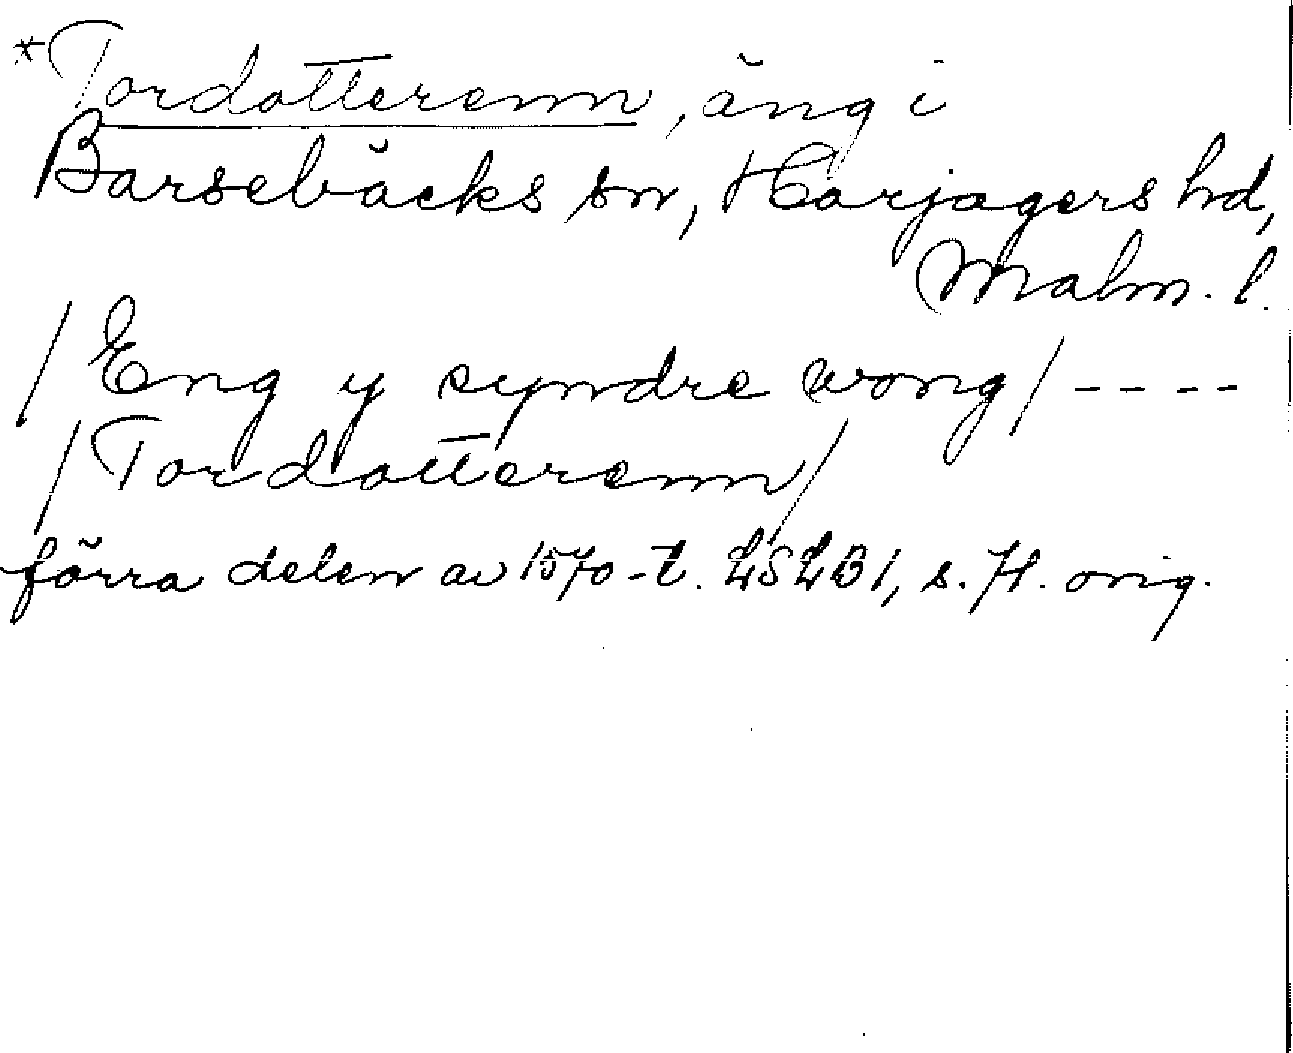 *Tordotterenn, äng i
Barsebäcks sn, Harjagers hd,
Malm. l.
/Eng y syndre wong/ ----
/Tordotterenn/
förra delen av 1570-t. LSLB1, s. 71. orig.